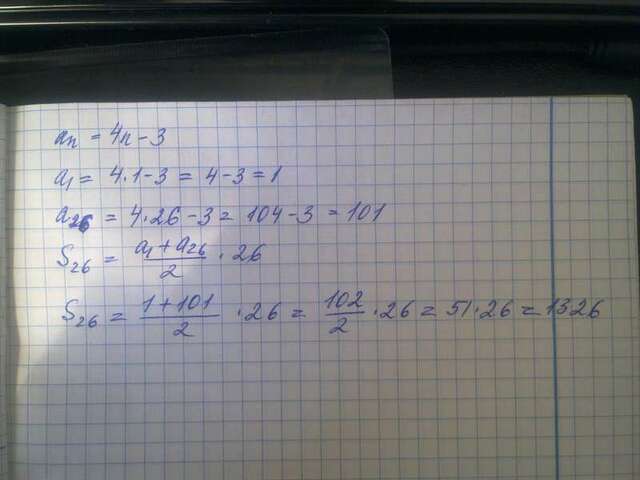 an = 4n - 3
a₁ = 4·1 - 3 = 4 - 3 = 1
a₂₆ = 4·26 - 3 = 104 - 3 = 101
S₂₆ = (a₁ + a₂₆)/2 · 26
S₂₆ = (1 + 101)/2 · 26 = 102/2 · 26 = 51·26 = 1326